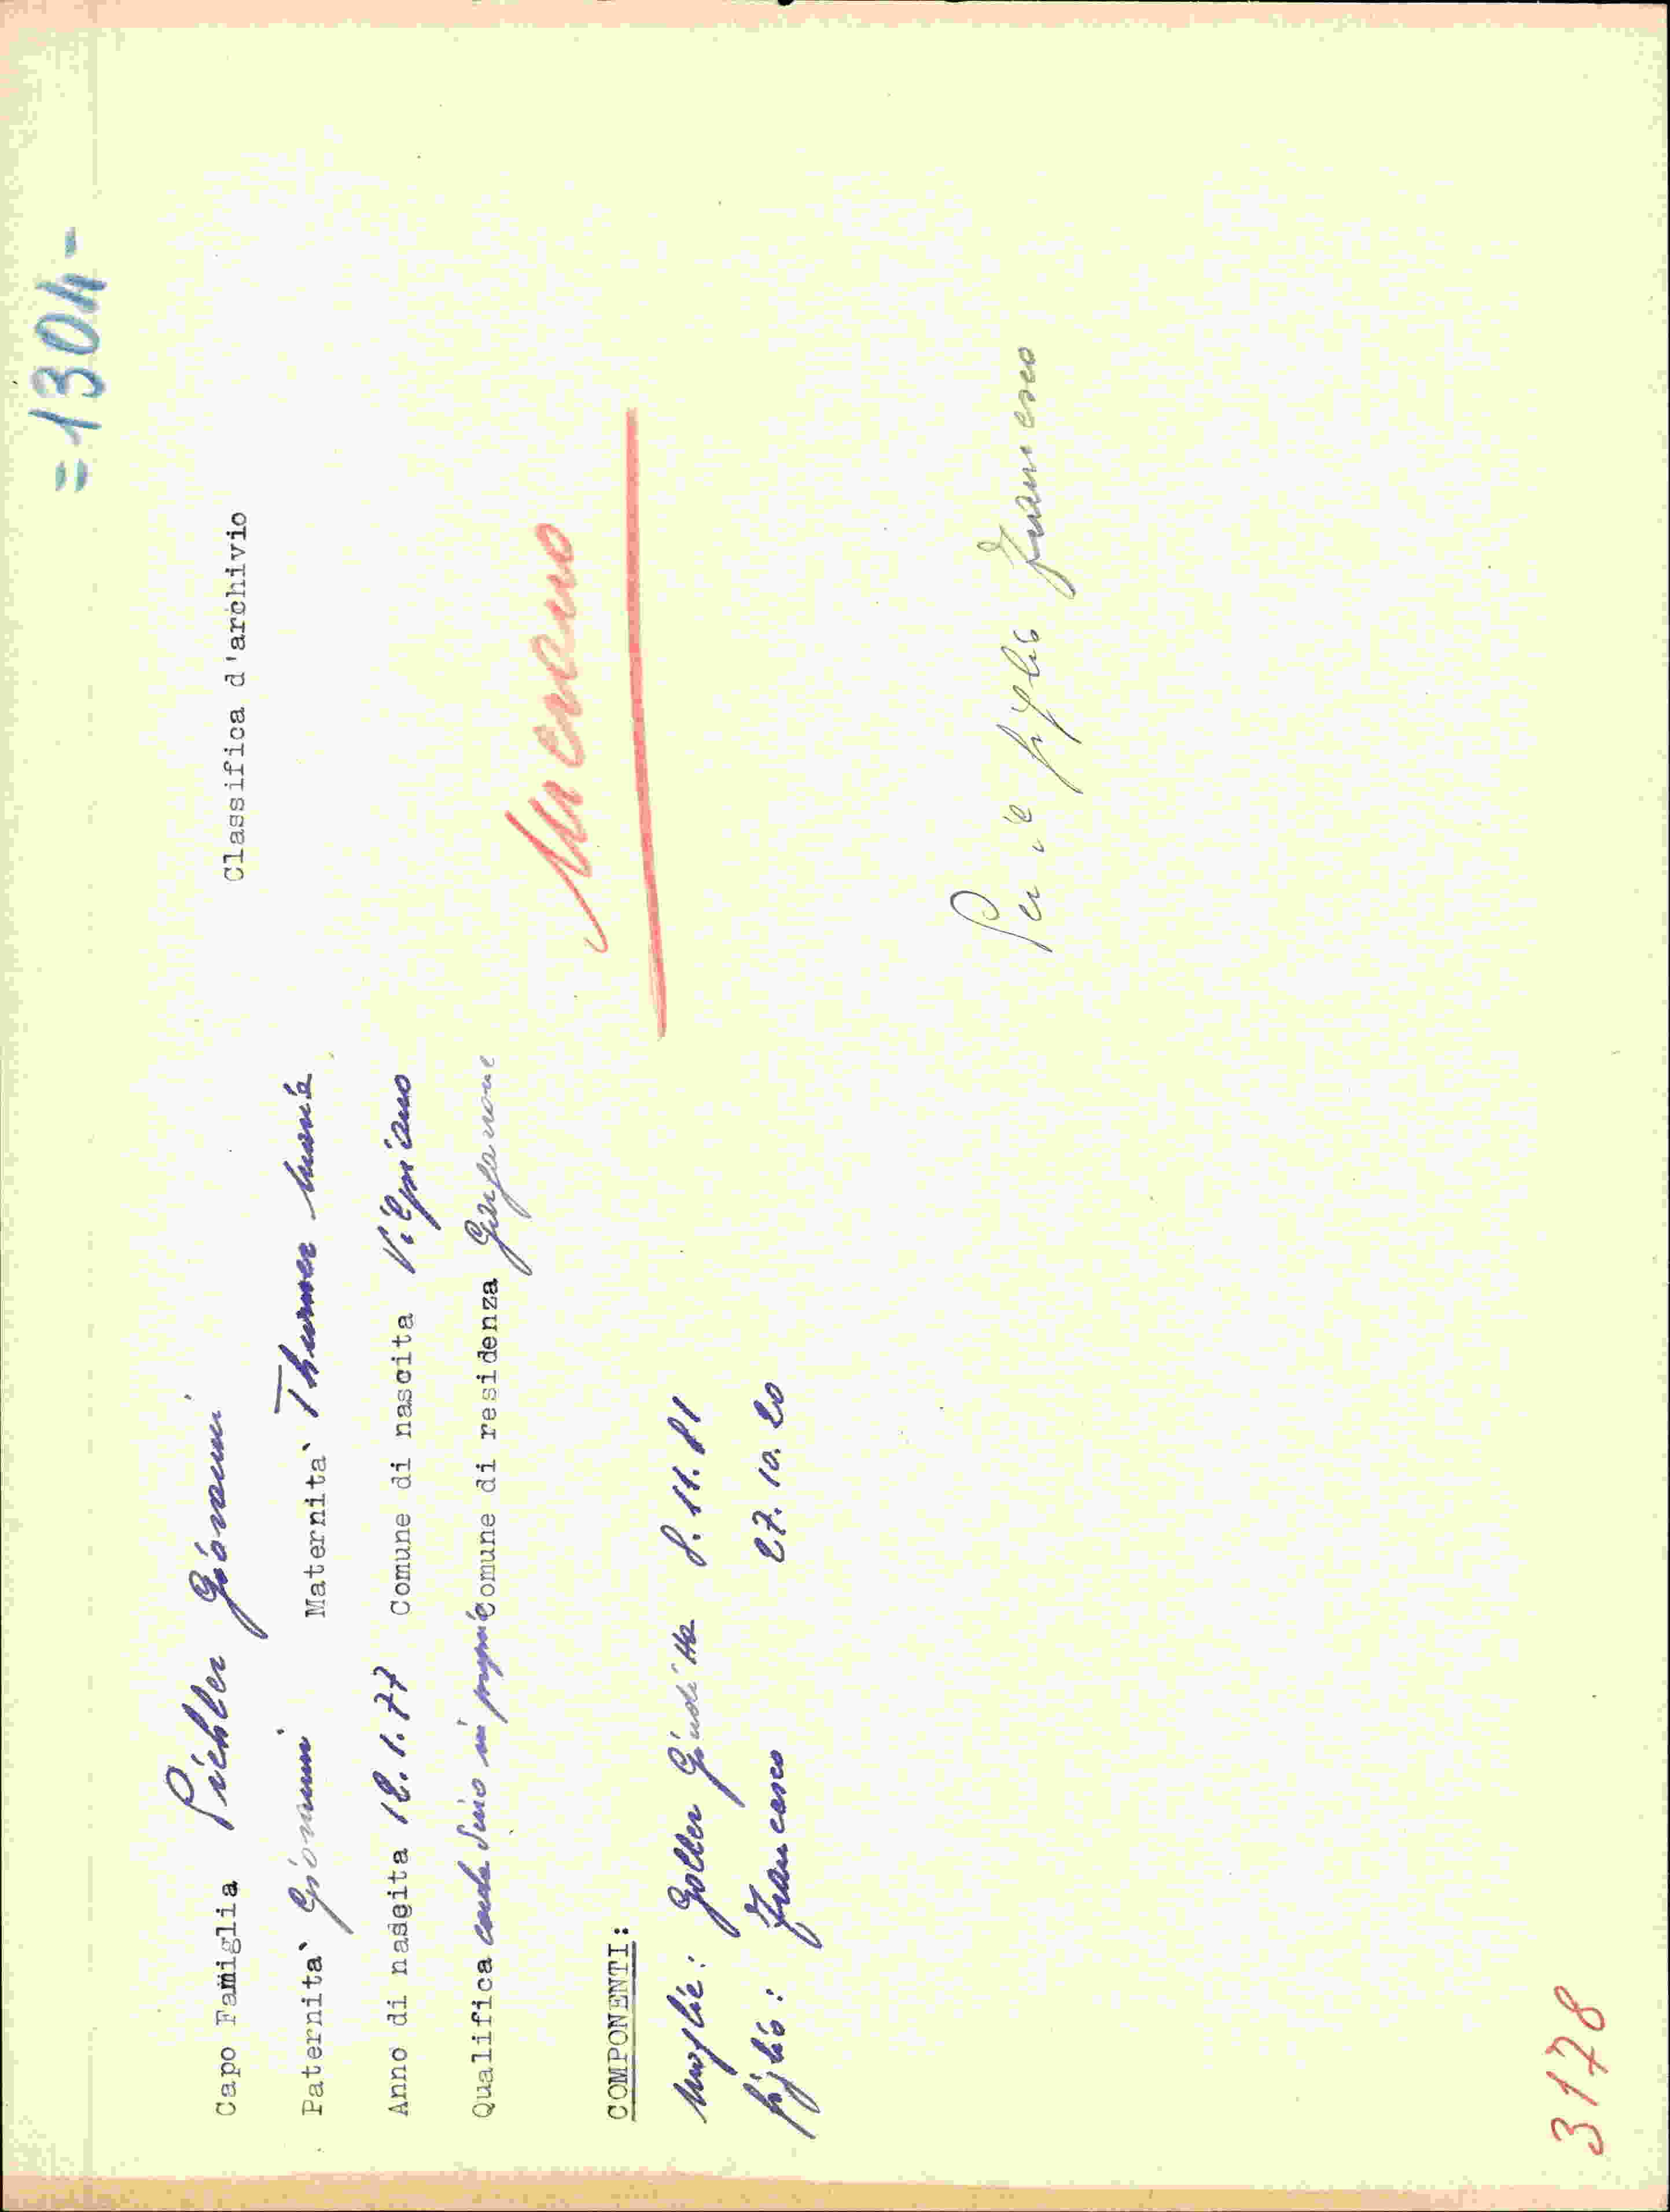 =1304-
Capo Famiglia Pichler Giovanni Classifica d'archivio
Paternita` Giovanni Maternita` Thurner Maria
Anno di nascita 12.1.77 Comune di nascita Vilpiano
Qualifica contadino in proprio Comune di residenza Gargazzone
Merano
COMPONENTI:
moglie: Goller Giuditta 8.11.81
figlio: Francesco 27.10.20
Per il figlio Francesco
3178